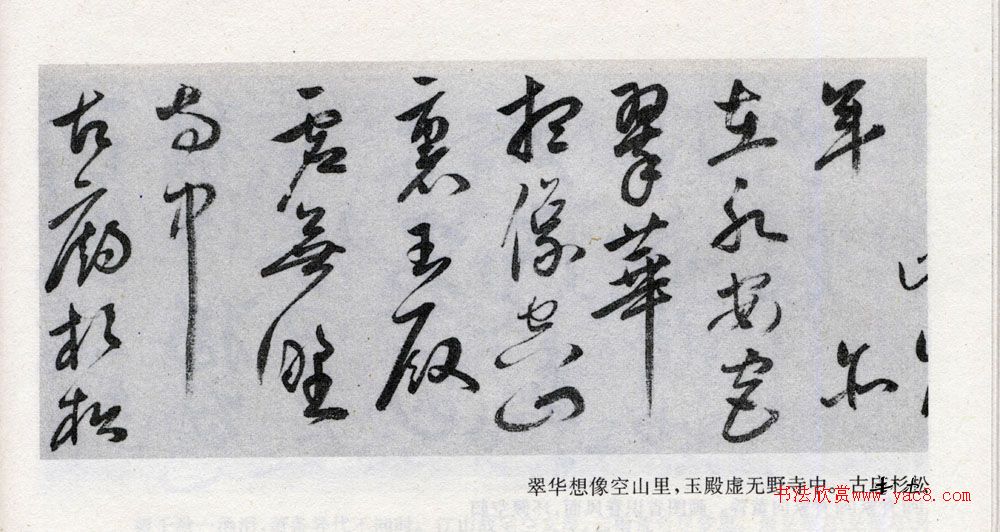 年亦
在永安宫
翠華
想像空山
裏玉殿
虚無野
寺中
古廟杉松
翠华想像空山里,玉殿虚无野寺中。古庙杉松
书法欣赏www.yac8.com